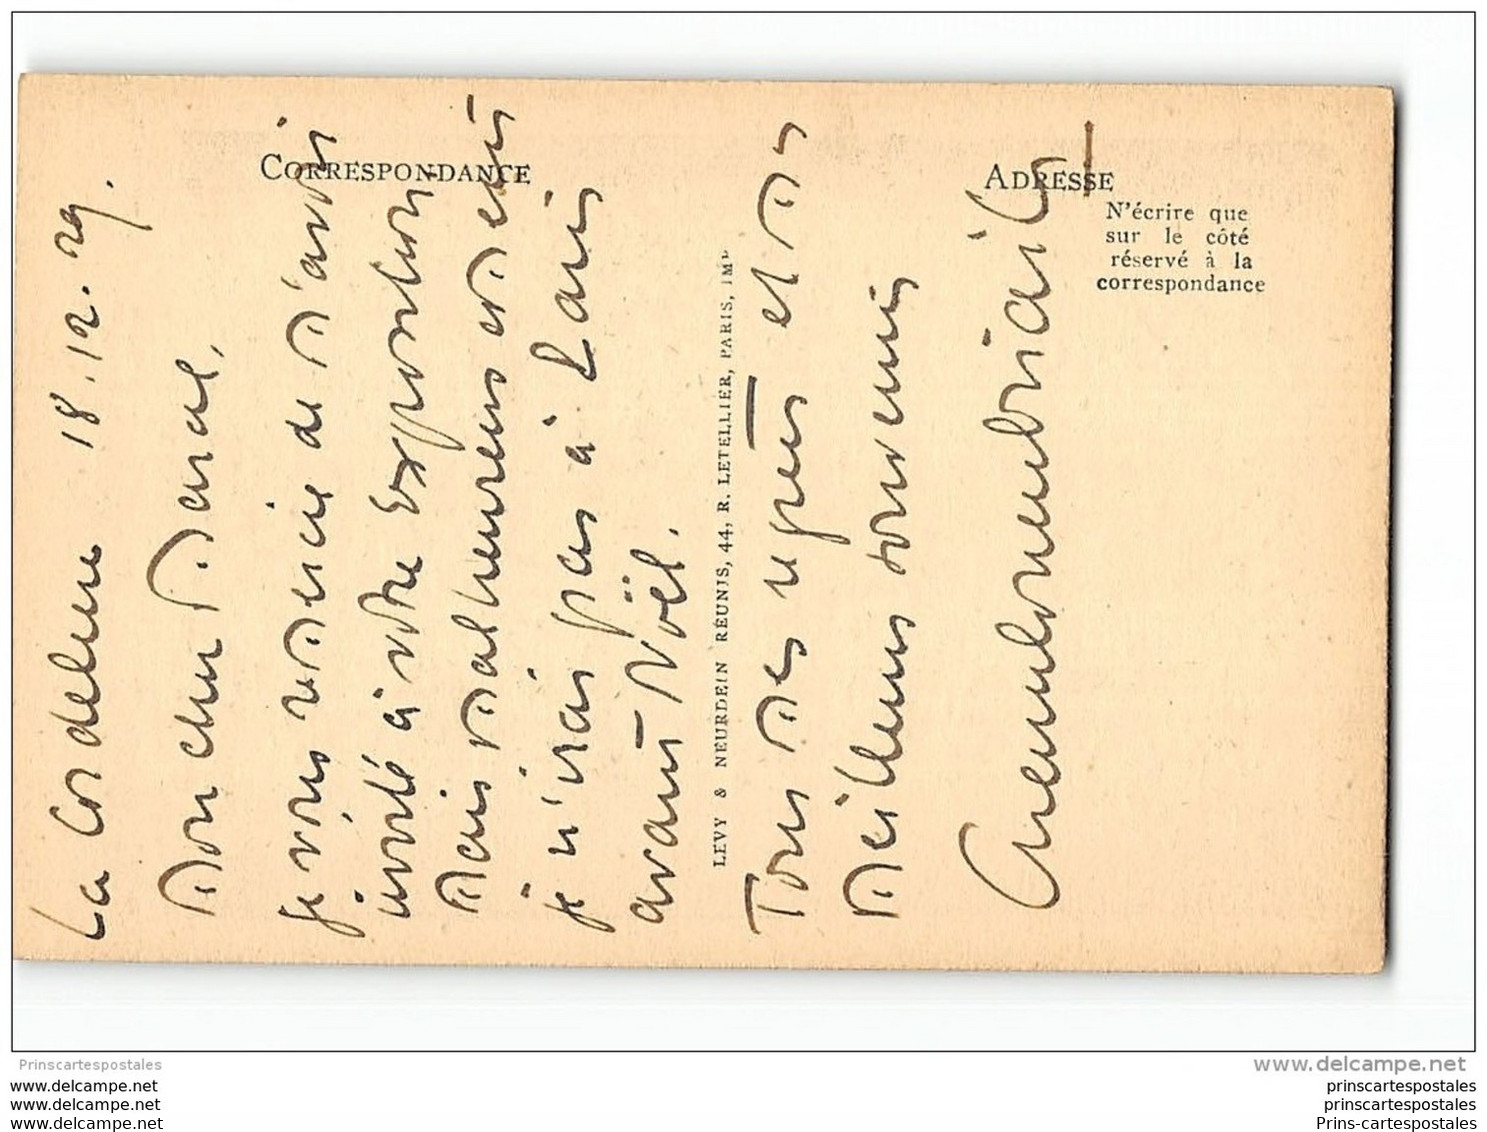 CORRESPONDANCE
ADRESSE
N'écrire que
sur le côté
réservé à la
correspondance
LEVY & NEURDEIN RÉUNIS, 44, R. LETELLIER, PARIS, IMP
La 18.12.29.
Mon cher
je vous remercie de m'avoir
invité à votre exposition
Mais malheureusement
je n'irai pas à Paris
avant Noël.
Tous mes regrets et mes
Meilleurs souvenirs
Prinscartespostales
www.delcampe.net
www.delcampe.net
www.delcampe.net
www.delcampe.net
prinscartespostales
prinscartespostales
Prins-cartespostales